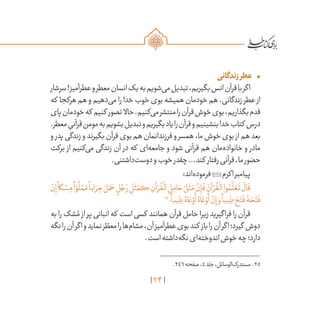 برای کتاب‌ها
• عطر زندگانی
اگر با قرآن انس بگیریم، تبدیل می‌شویم به یک انسان معطر و عطرآمیز! سرشار
از عطر زندگانی. هم خودمان همیشه بوی خوب خدا را می‌دهیم و هم هرکجا که
قدم بگذاریم، بوی خوش قرآن را منتشر می‌کنیم. حالا تصور کنیم که خودمان پای
درس کتاب خدا بنشینیم و قرآن را یاد بگیریم و تبدیل بشویم به مومن قرآنی معطر.
بعد هم از بوی خوش ما، همسر و فرزندانمان هم بوی قرآن بگیرند و زندگی پدر و
مادر و خانواده‌مان هم قرآنی شود و جامعه‌ای که در آن زندگی می‌کنیم از برکت
حضور ما، قرآنی رفتار کند... چقدر خوب و دوست‌داشتنی.
پیامبر اکرم فرموده‌اند:
قرآن را فراگیرید زیرا حامل قرآن همانند کسی است که انبانی پر از مُشک را به
دوش گیرد؛ اگر آن را باز کند بوی عطرآمیز آن، مشام‌ها را معطر نماید و اگر آن را نگه
دارد؛ چه خوش اندوخته‌ای نگه‌داشته است.
۲۵. مستدرک‌الوسائل، جلد ۴، صفحه ۲۴۶.